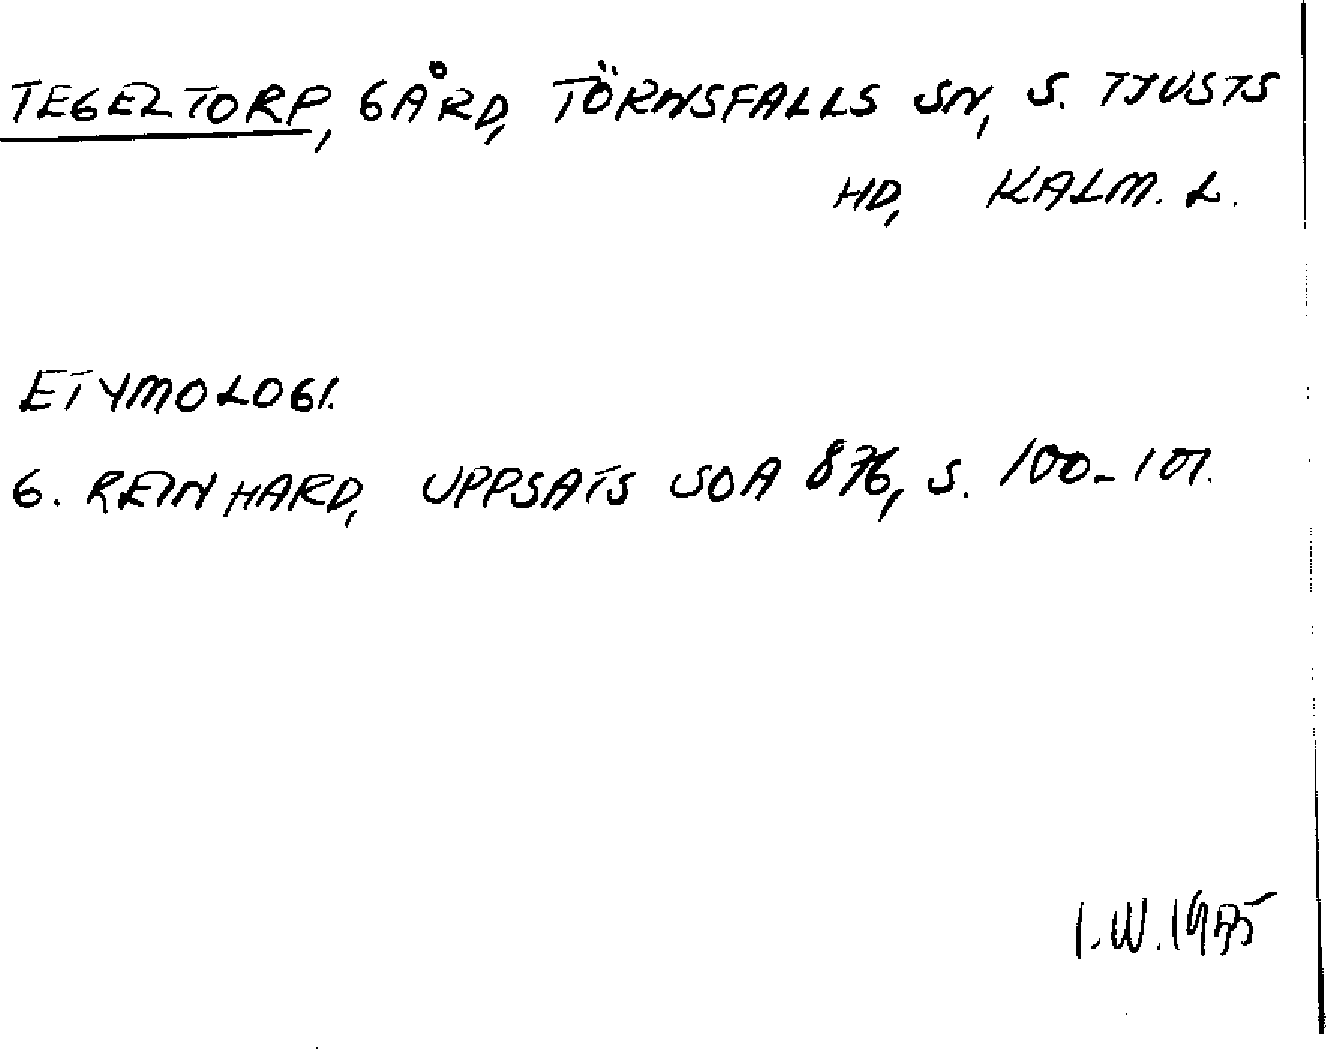 TEGELTORP, GÅRD, TÖRNSFALLS SN, S. TJUSTS
HD, KALM. L.
ETYMOLOGI.
G. REINHARD, UPPSATS SOA 876, S. 100-101.
I.W.